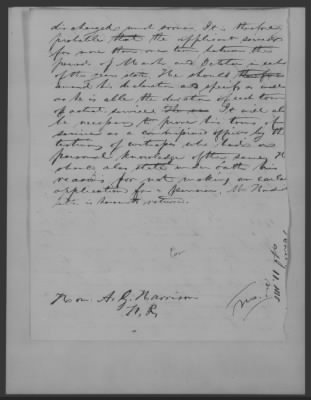 discharged until
probable that the applicant served
for more than one term between the
periods of March and October in each
of the years stated. He should
amend his declaration and specify as nearly
as he is able the duration of each term
of actual service. It will also
be necessary to prove his tour of
service as a commissioned officer by the
testimony of witnesses who have a
personal knowledge of the same. He
should also state under oath his
reasons for not making an earlier
application for a pension.
is herewith returned.
Hon. A. G. Harrison
H. R.